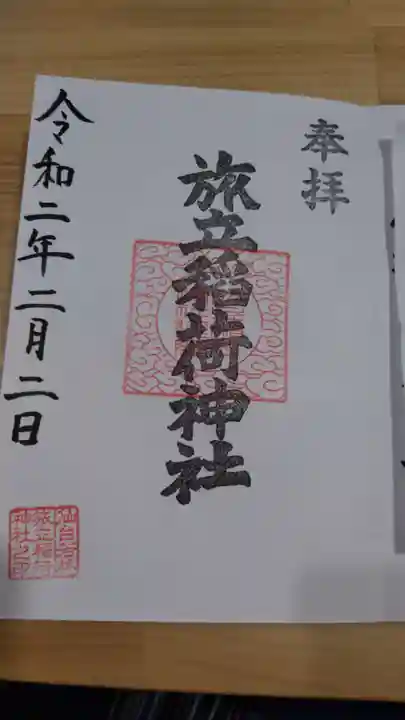 奉拝
旅立稲荷神社
令和二年二月二日
仙台宮原
旅立稲荷
神社之印